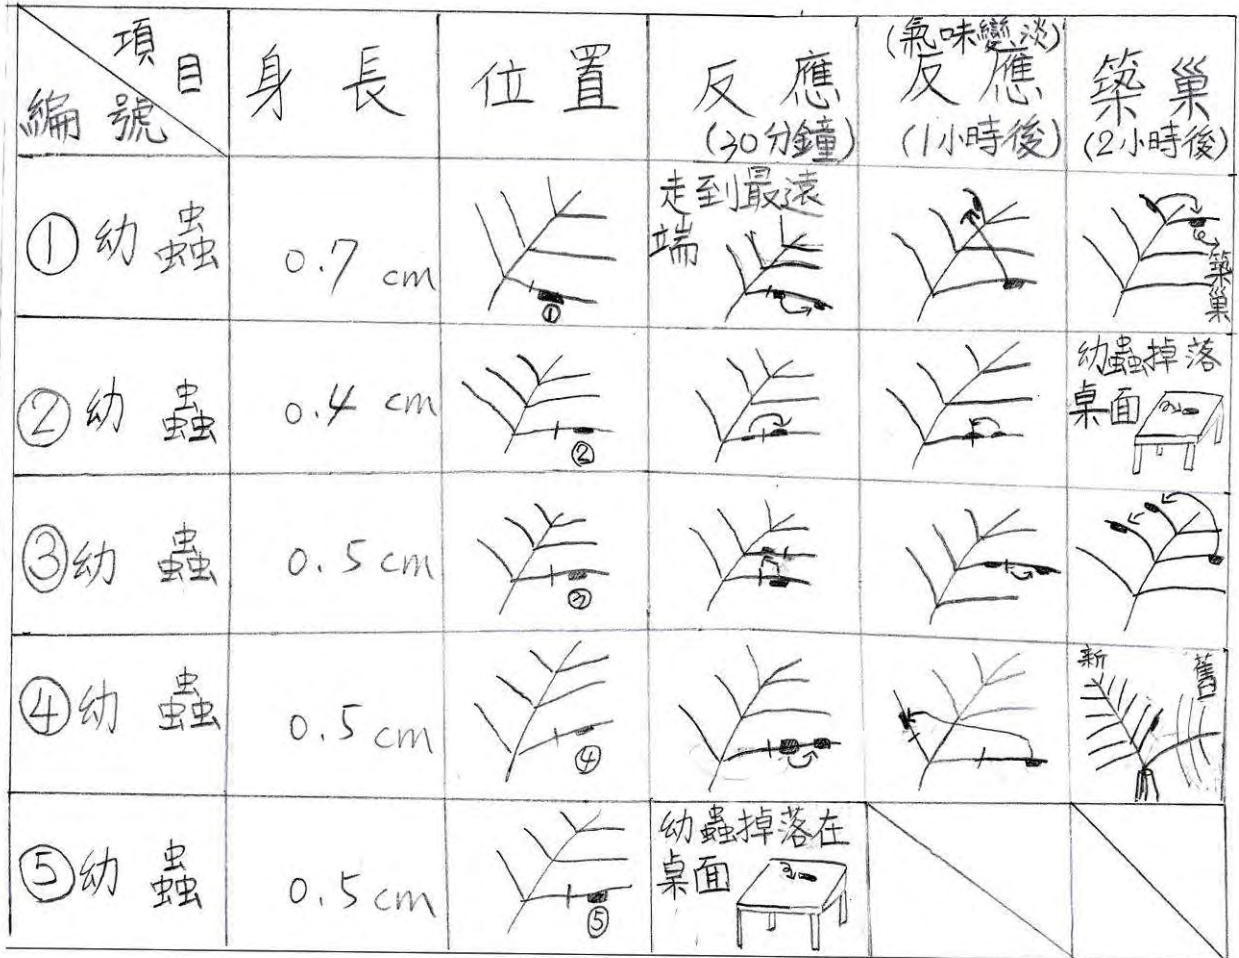 項目
編號
身長
位置
反應
(30分鐘)
(氣味變淡)
反應
(1小時後)
築巢
(2小時後)
①幼蟲
0.7 cm
①
走到最遠
端
築巢
②幼蟲
0.4 cm
②
幼蟲掉落
桌面
③幼蟲
0.5 cm
③
④幼蟲
0.5 cm
④
新
舊
⑤幼蟲
0.5 cm
⑤
幼蟲掉落在
桌面